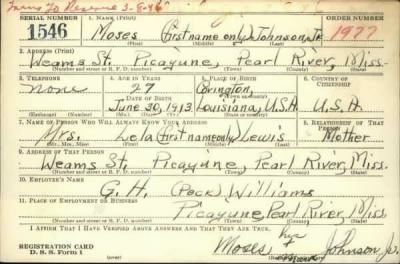 Trans to Reserve 3-8-46
SERIAL NUMBER 1. NAME (Print)
1546 Moses (first name only) Johnson, Jr. 1977
(First) (Middle) (Last)
2. ADDRESS (Print)
Weams St. Picayune, Pearl River, Miss.
(Number and street or R. F. D. number) (Town) (County) (State)
3. TELEPHONE 4. AGE IN YEARS 5. PLACE OF BIRTH 6. COUNTRY OF CITIZENSHIP
None 27 Covington,
DATE OF BIRTH
June 30, 1913 Louisiana, U.S.A. U.S.A.
(Exchange) (Number) (Mo.) (Day) (Yr.) (State or country)
7. NAME OF PERSON WHO WILL ALWAYS KNOW YOUR ADDRESS 8. RELATIONSHIP OF THAT PERSON
Mrs. Lela (first name only) Lewis Mother
(Mr., Mrs., Miss) (First) (Middle) (Last)
9. ADDRESS OF THAT PERSON
Weams St. Picayune, Pearl River, Miss.
(Number and street or R. F. D. number) (Town) (County) (State)
10. EMPLOYER'S NAME
G. H. (Pock) Williams
11. PLACE OF EMPLOYMENT OR BUSINESS
Picayune, Pearl River, Miss.
(Number and street or R. F. D. number) (Town) (County) (State)
I AFFIRM THAT I HAVE VERIFIED ABOVE ANSWERS AND THAT THEY ARE TRUE.
his
REGISTRATION CARD Moses + Johnson Jr.
D. S. S. Form 1 mark